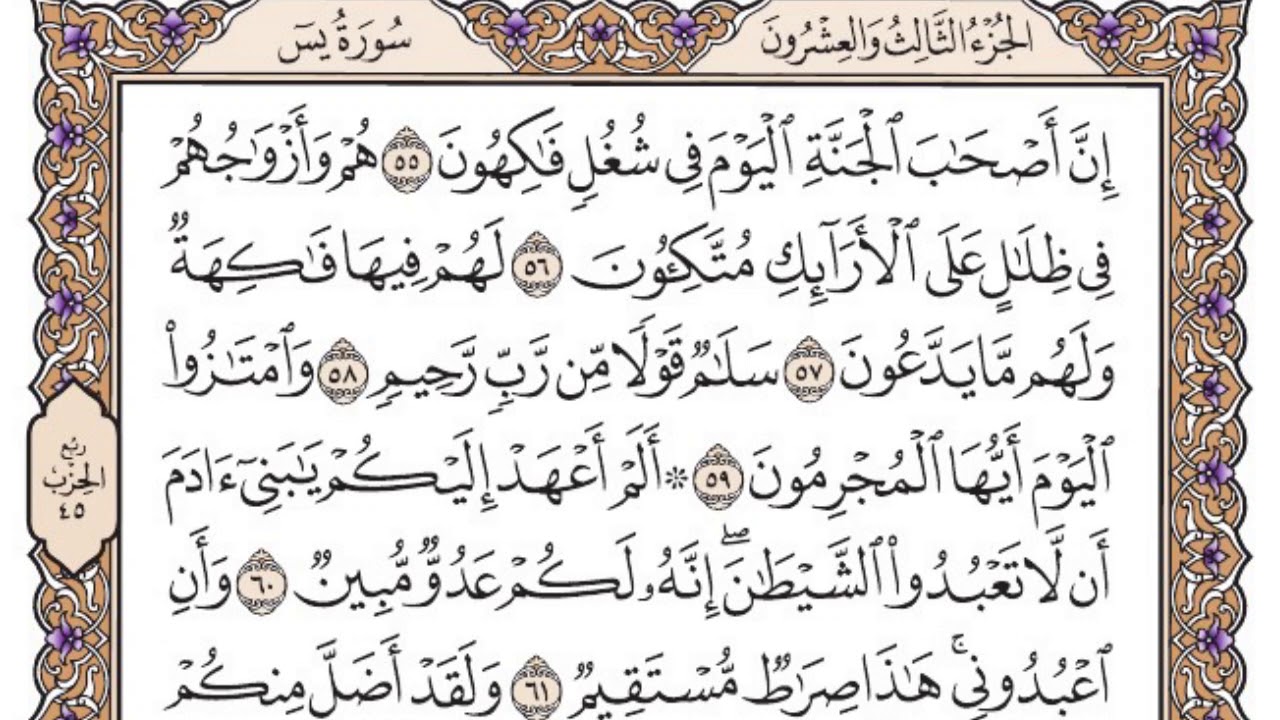 الجزء الثالث والعشرون
سورة يس
إِنَّ أَصْحَٰبَ ٱلْجَنَّةِ ٱلْيَوْمَ فِى شُغُلٍ فَٰكِهُونَ ٥٥ هُمْ وَأَزْوَٰجُهُمْ
فِى ظِلَٰلٍ عَلَى ٱلْأَرَآئِكِ مُتَّكِـُٔونَ ٥٦ لَهُمْ فِيهَا فَٰكِهَةٌ
وَلَهُم مَّا يَدَّعُونَ ٥٧ سَلَٰمٌ قَوْلًا مِّن رَّبٍّ رَّحِيمٍ ٥٨ وَٱمْتَٰزُوا۟
ٱلْيَوْمَ أَيُّهَا ٱلْمُجْرِمُونَ ٥٩ ۞ أَلَمْ أَعْهَدْ إِلَيْكُمْ يَٰبَنِىٓ ءَادَمَ
أَن لَّا تَعْبُدُوا۟ ٱلشَّيْطَٰنَ ۖ إِنَّهُۥ لَكُمْ عَدُوٌّ مُّبِينٌ ٦٠ وَأَنِ
ٱعْبُدُونِى ۚ هَٰذَا صِرَٰطٌ مُّسْتَقِيمٌ ٦١ وَلَقَدْ أَضَلَّ مِنكُمْ
ربع
الحزب
٤٥